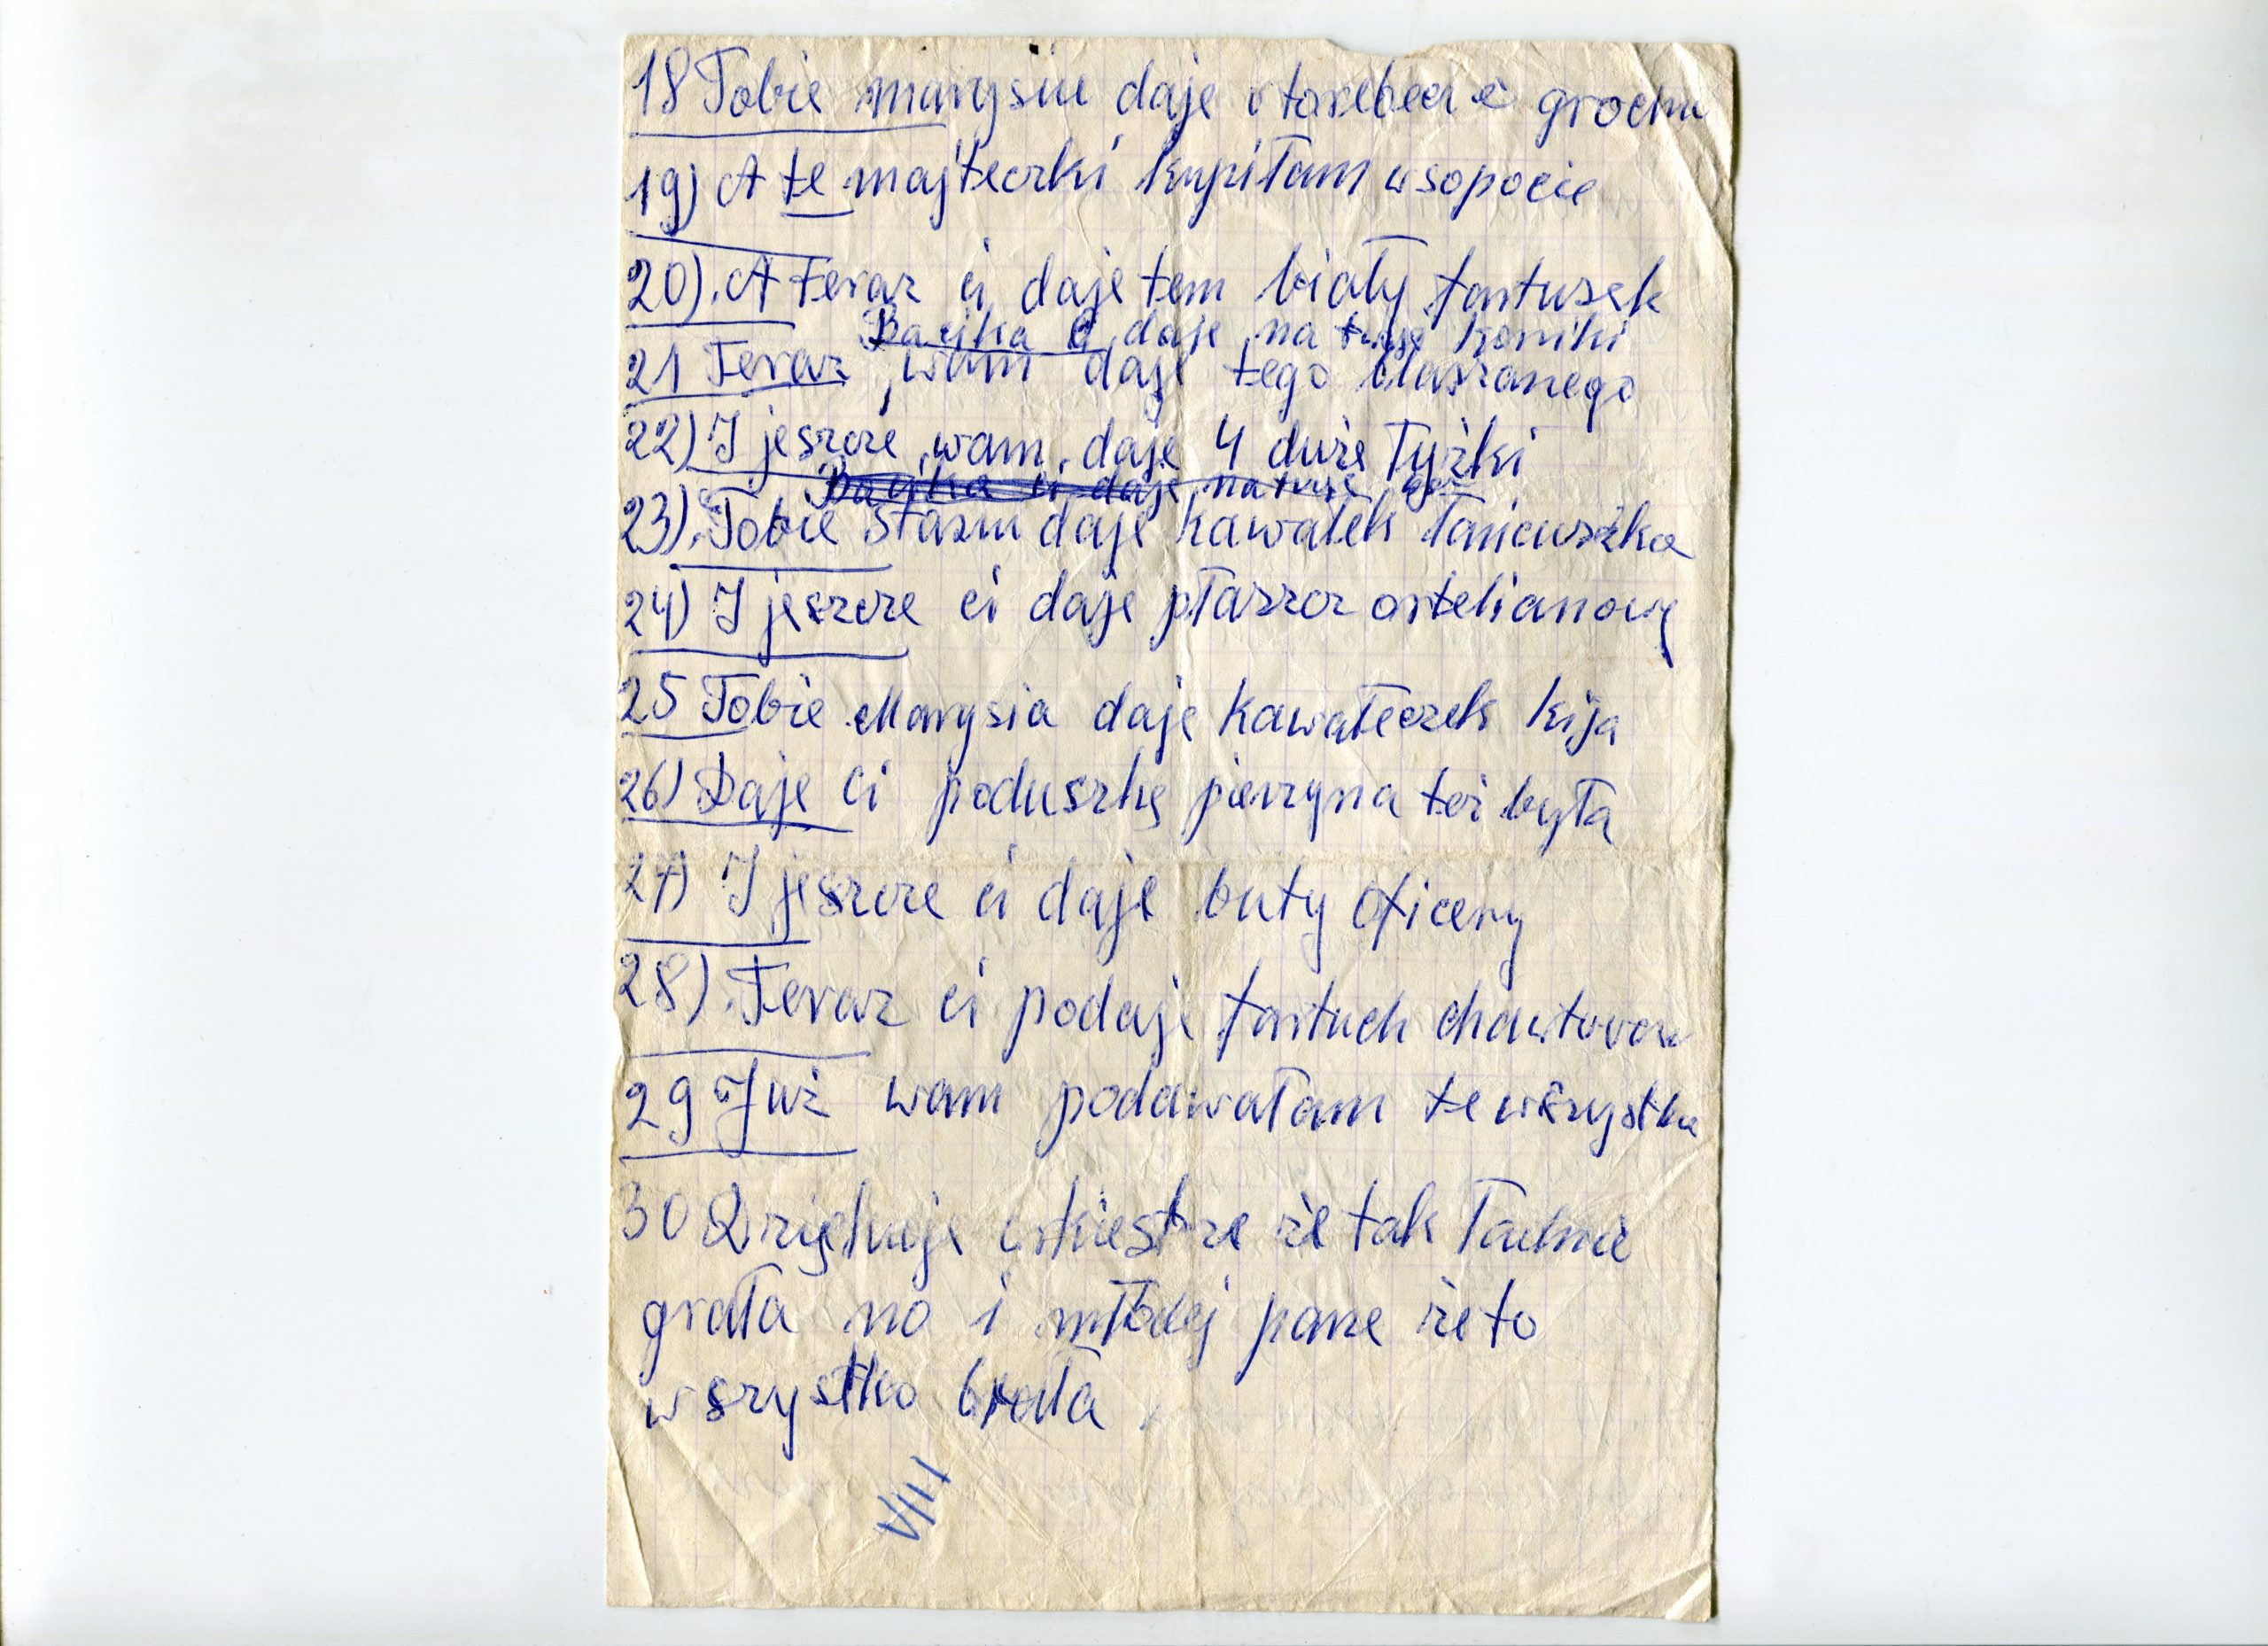 18 Tobie marysiu daje i torebeczke grochu
19) A te majteczki kupiłam w sopocie
20). A teraz ci daje tem biały fartuszek
Bacika ci daje na twoje koniki
21 Teraz wam daje tego blaszanego
22) I jeszcze wam daje 4 duże łyżki
23). Tobie Staszu daje kawałek łańcuszka
24) I jeszcze ci daje płaszcz ortelianowy
25 Tobie Marysia daje kawałeczek kija
26) Daje ci poduszkę pierzyna też była
27) I jeszcze ci daje buty oficery
28). Teraz ci podaje fartuch
29 Już wam podawałam te wszystko
30 Dziękuje orkiestrze że tak ładnie
grała no i młodej pane że to
wszystko brała
VIII